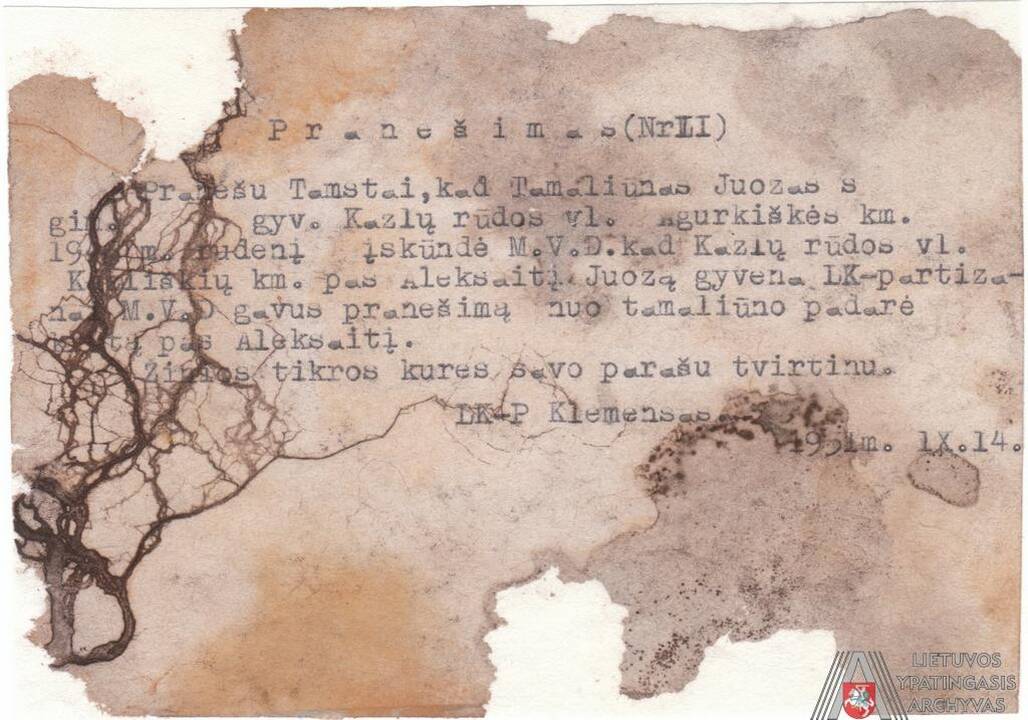 P r a n e š i m a s (Nr LI)
Pranešu Tamstai,kad Tamaliūnas Juozas s
gim. gyv. Kazlų rūdos vl. Agurkiškės km.
m. rudenį įskūndė M.V.D.kad Kazlų rūdos vl.
km. pas Aleksaitį Juozą gyvena LK-partiza-
M.V.D gavus pranešimą nuo tamaliūno padarė
pas Aleksaitį.
Žinios tikros kures savo parašu tvirtinu.
LK-P Klemensas.
1951m. IX.14.
LIETUVOS
YPATINGASIS
ARCHYVAS